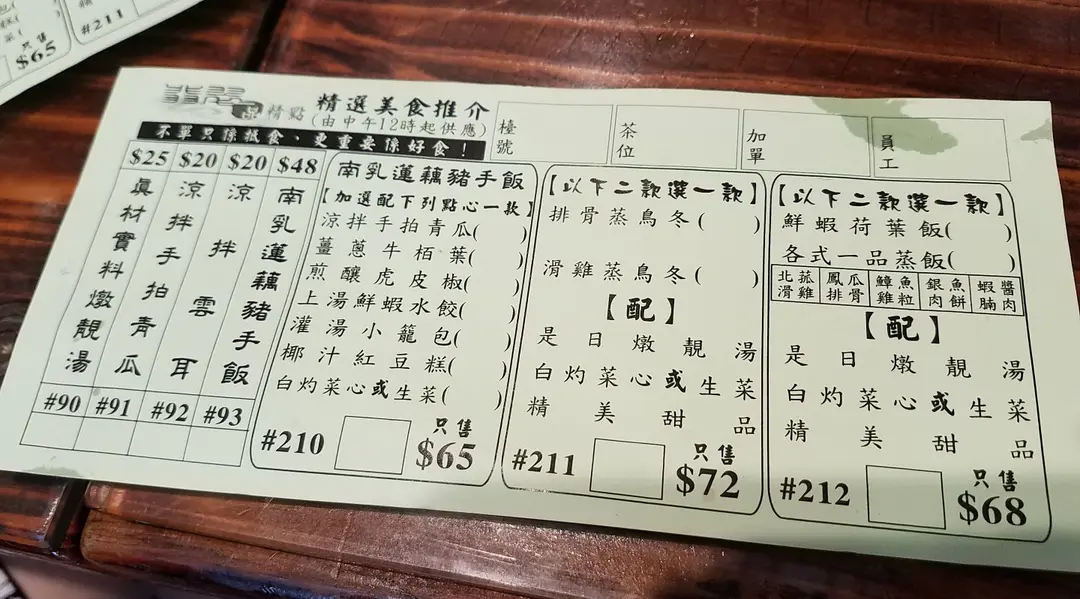 #211
只售
$65
點精點
精選美食推介
(由中午12時起供應)
不單只係抵食、更重要係好食！
檯號
茶位
加單
員工
$25
真材實料燉靚湯
#90
$20
涼拌手拍青瓜
#91
$20
涼拌雲耳
#92
$48
南乳蓮藕豬手飯
#93
南乳蓮藕豬手飯
【加選配下列點心一款】
涼拌手拍青瓜( )
薑蔥牛栢葉( )
煎釀虎皮椒( )
上湯鮮蝦水餃( )
灌湯小籠包( )
椰汁紅豆糕( )
白灼菜心或生菜( )
#210
只售
$65
【以下二款選一款】
排骨蒸鳥冬( )
滑雞蒸鳥冬( )
【配】
是日燉靚湯
白灼菜心或生菜
精美甜品
#211
只售
$72
【以下二款選一款】
鮮蝦荷葉飯( )
各式一品蒸飯( )
北菰滑雞
鳳瓜排骨
鱆魚雞粒
銀魚肉餅
蝦醬腩肉
【配】
是日燉靚湯
白灼菜心或生菜
精美甜品
#212
只售
$68